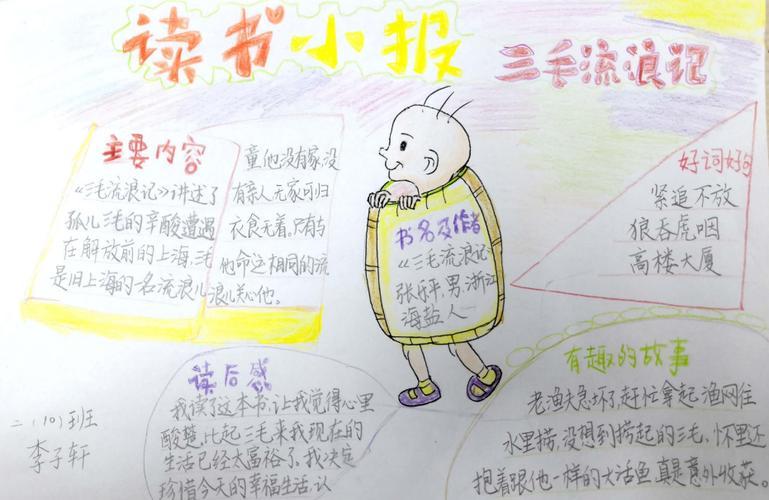 读书小报
三毛流浪记
主要内容
《三毛流浪记》讲述了
孤儿三毛的辛酸遭遇
在解放前的上海,三毛
是旧上海的一名流浪儿
童他没有家,没
有亲人无家可归
衣食无着。只有与
他命运相同的流
浪儿关心他。
书名及作者
《三毛流浪记》
张乐平,男,浙江
海盐人
好词好句
紧追不放
狼吞虎咽
高楼大厦
读后感
我读了这本书,让我觉得心里
酸楚,比起三毛来我现在的
生活已经太富裕了。我决定
珍惜今天的幸福生活,认
有趣的故事
老渔夫急坏了,赶忙拿起渔网往
水里捞,没想到捞起的三毛、怀里还
抱着跟他一样的大活鱼,真是意外收获。
二、(10)班
李子轩